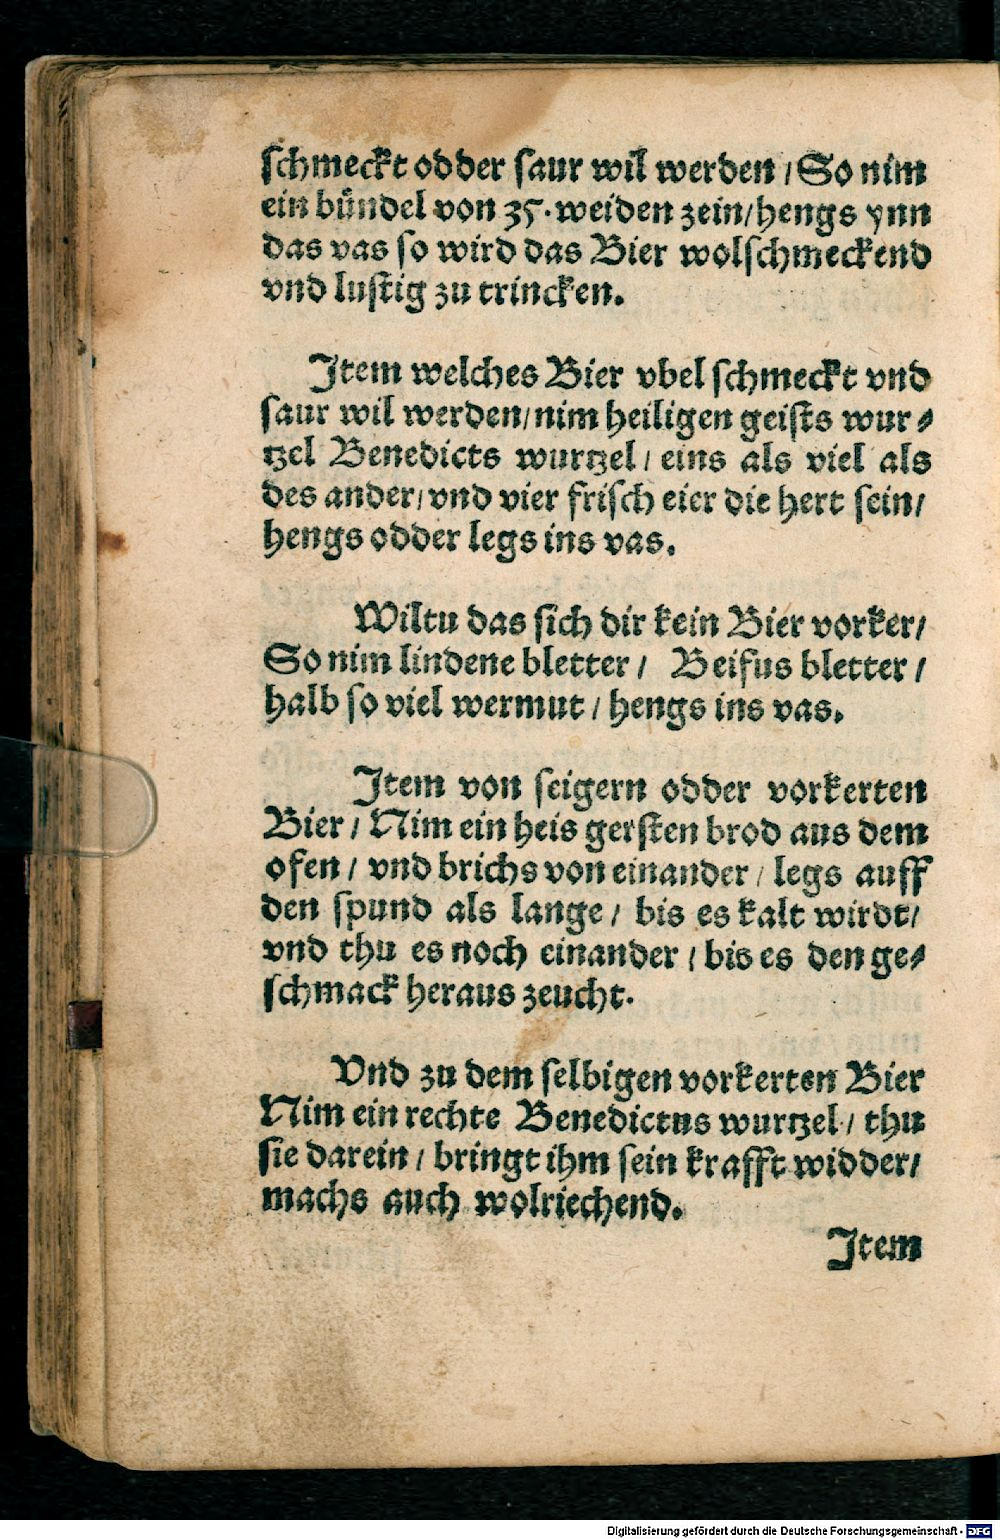 schmeckt odder saur wil werden / So nim
ein bündel von 35. weiden zein / hengs ynn
das vas so wird das Bier wolschmeckend
vnd lustig zu trincken.
Item welches Bier vbel schmeckt vnd
saur wil werden / nim heiligen geists wur⸗
tzel Benedicts wurtzel / eins als viel als
des ander / vnd vier frisch eier die hert sein /
hengs odder legs ins vas.
Wiltu das sich dir kein Bier vorker /
So nim lindene bletter / Beifus bletter /
halb so viel wermut / hengs ins vas.
Item von seigern odder vorkerten
Bier / Nim ein heis gersten brod aus dem
ofen / vnd brichs von einander / legs auff
den spund als lange / bis es kalt wirdt /
vnd thu es noch einander / bis es den ge⸗
schmack heraus zeucht.
Vnd zu dem selbigen vorkerten Bier
Nim ein rechte Benedictus wurtzel / thu
sie darein / bringt ihm sein krafft widder /
machs auch wolriechend.
Item
Digitalisierung gefördert durch die Deutsche Forschungsgemeinschaft - DFG